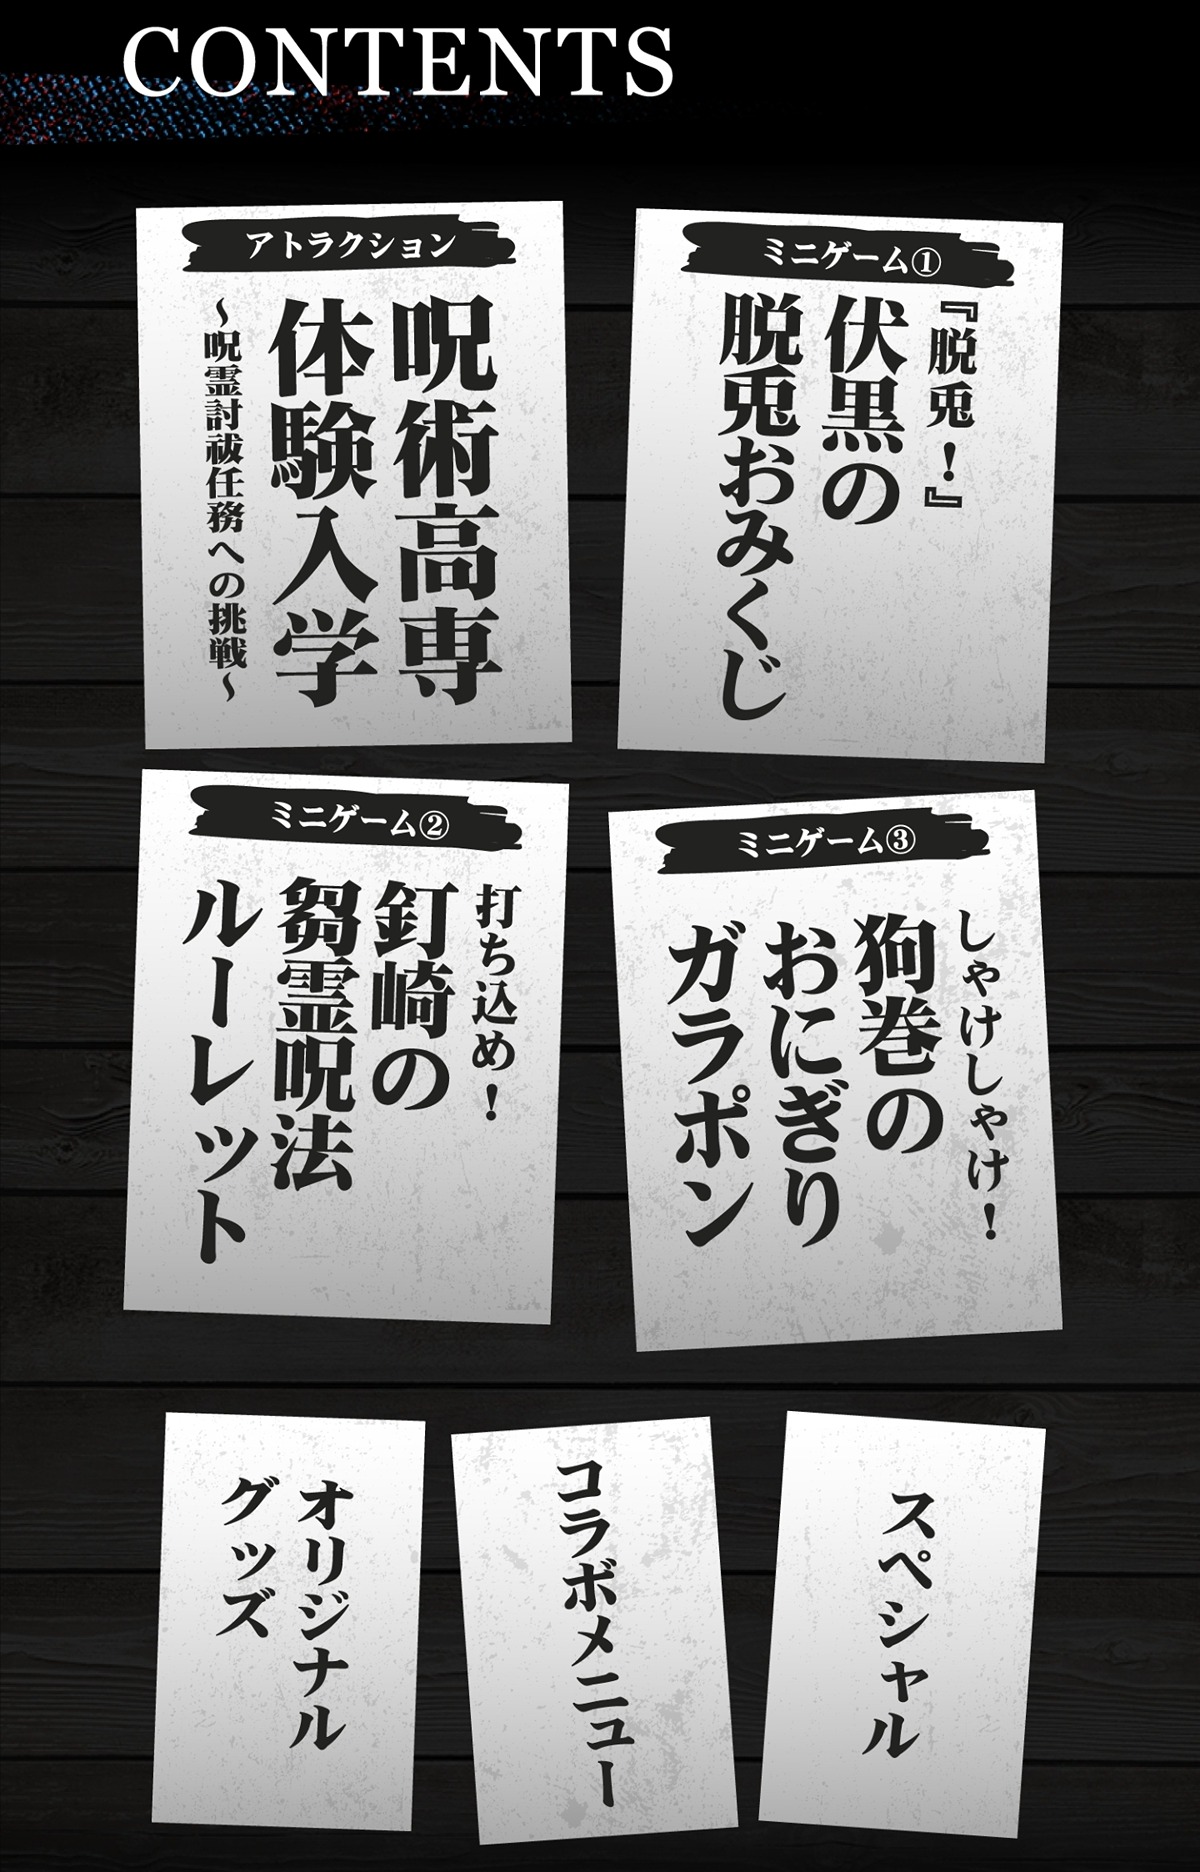 CONTENTS
アトラクション
呪術高専
体験入学
～呪霊討祓任務への挑戦～
ミニゲーム①
『脱兎！』
伏黒の
脱兎おみくじ
ミニゲーム②
打ち込め！
釘崎の
芻霊呪法
ルーレット
ミニゲーム③
しゃけしゃけ！
狗巻の
おにぎり
ガラポン
オリジナル
グッズ
コラボメニュー
スペシャル